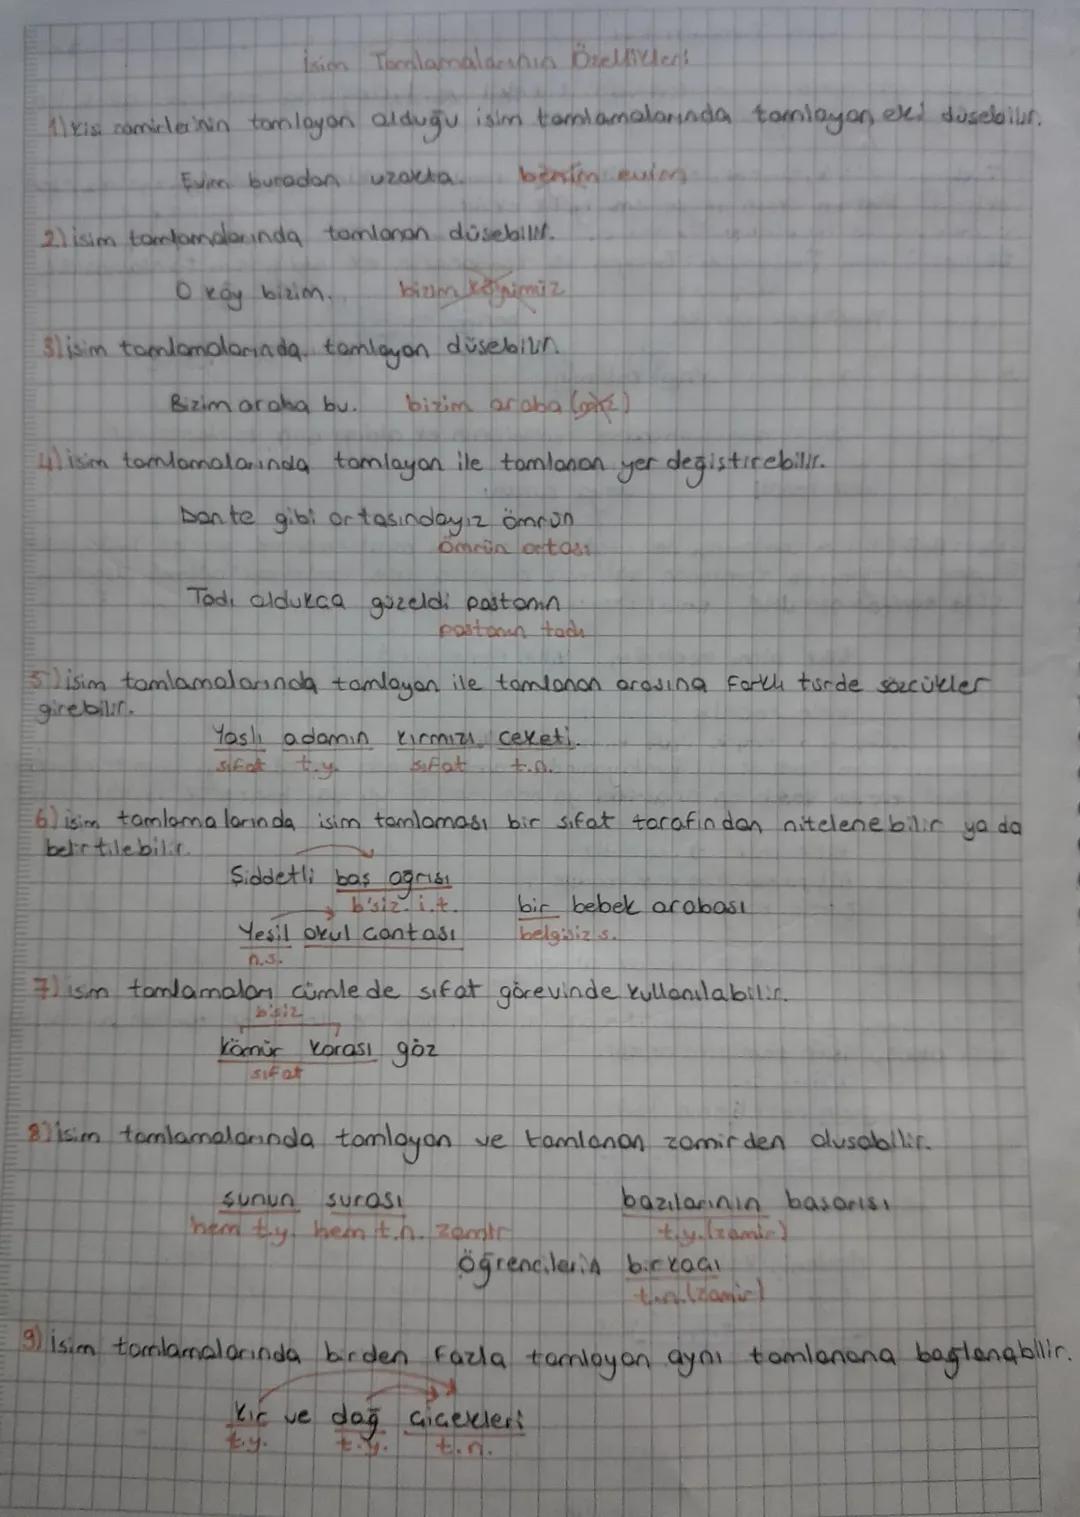 İsim Tamlamalarının Özellikleri
1) Kişi zamirlerinin tamlayan olduğu isim tamlamalarında tamlayan eki düşebilir.
Evim buradan uzakta. benim evim
2) isim tamlamalarında tamlanan düşebilir.
O köy bizim. bizim köyümüz
3) isim tamlamalarında tamlayan düşebilir.
Bizim araba bu. bizim araba (mız)
4) isim tamlamalarında tamlayan ile tamlanan yer değiştirebilir.
Dante gibi ortasındayız ömrün
ömrün ortası
Tadı oldukça güzeldi pastanın
pastanın tadı
5) isim tamlamalarında tamlayan ile tamlanan arasına farklı türde sözcükler
girebilir.
Yaşlı adamın kırmızı ceketi.
sıfat t.y. sıfat t.n.
6) isim tamlamalarında isim tamlaması bir sıfat tarafından nitelenebilir ya da
belirtilebilir.
Şiddetli baş ağrısı
b'siz. i.t. bir bebek arabası
Yeşil okul çantası belgisiz s.
n.s.
7) isim tamlamaları cümlede sıfat görevinde kullanılabilir.
b'siz
kömür karası göz
sıfat
8) isim tamlamalarında tamlayan ve tamlanan zamirden oluşabilir.
şunun şurası bazılarının başarısı
hem t.y. hem t.n. zamir t.y. (zamir)
öğrencilerin birkaçı
t.n. (zamir)
9) isim tamlamalarında birden fazla tamlayan aynı tamlanana bağlanabilir.
Kır ve dağ çiçekleri
t.y. t.y. t.n.